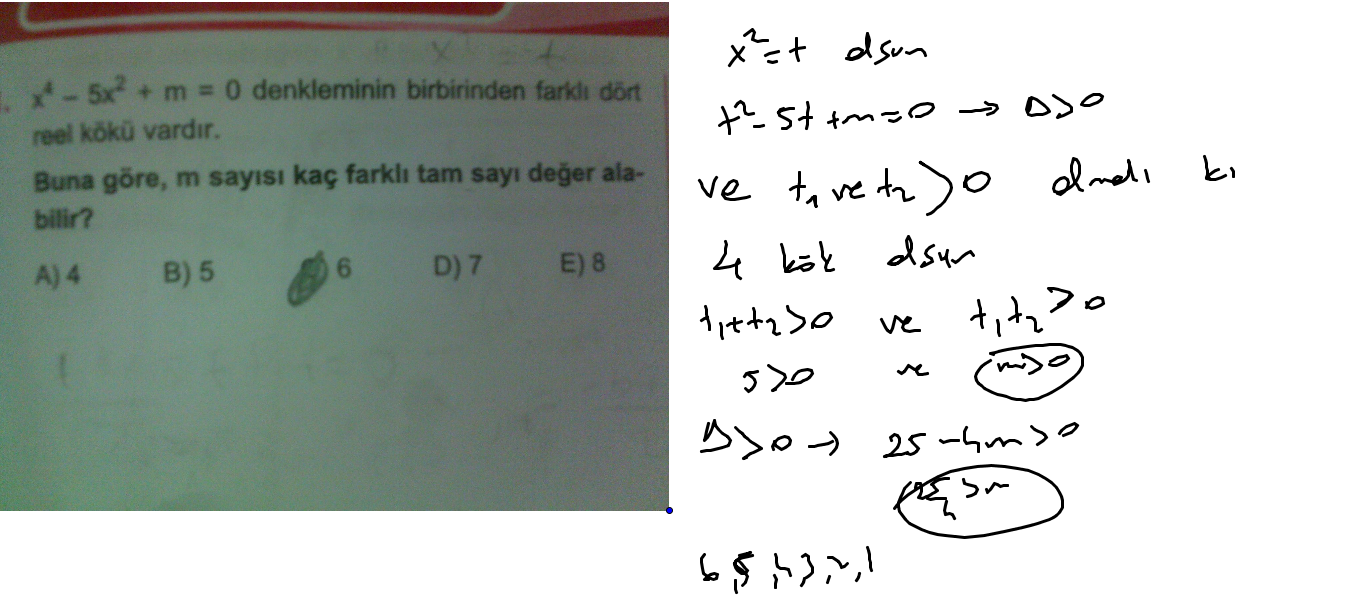 x⁴ - 5x² + m = 0 denkleminin birbirinden farklı dört
reel kökü vardır.
Buna göre, m sayısı kaç farklı tam sayı değer ala-
bilir?
A) 4 B) 5 6 D) 7 E) 8
x² = t olsun
t² - 5t + m = 0 → Δ > 0
ve t₁ ve t₂ > 0 olmalı ki
4 kök olsun
t₁ + t₂ > 0 ve t₁ t₂ > 0
5 > 0 ve m > 0
Δ > 0 → 25 - 4m > 0
25/4 > m
6, 5, 4, 3, 2, 1